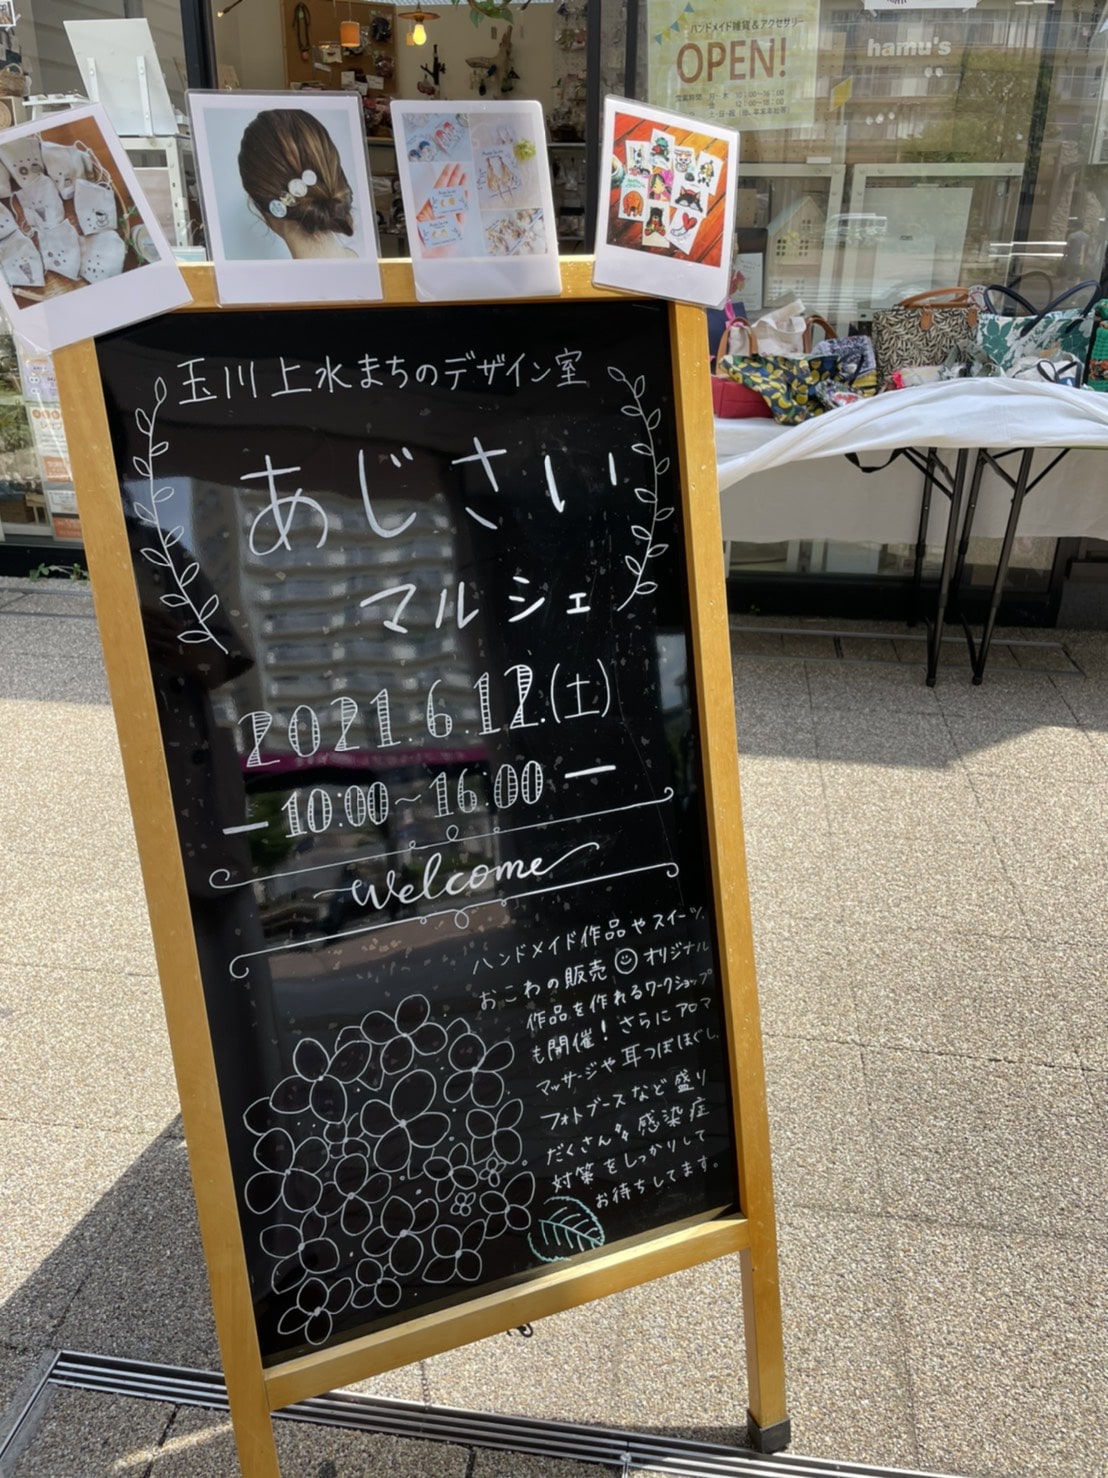 ハンドメイド雑貨&アクセサリー
OPEN!
hamu's
玉川上水まちのデザイン室
あじさい
マルシェ
2021.6.12.(土)
10:00~16:00
welcome
ハンドメイド作品やスイーツ、
おこわの販売 オリジナル
作品を作れるワークショップ
も開催!さらにアロマ
マッサージや耳つぼほぐし、
フォトブースなど盛り
だくさん♪感染症
対策をしっかりして
お待ちしてます。